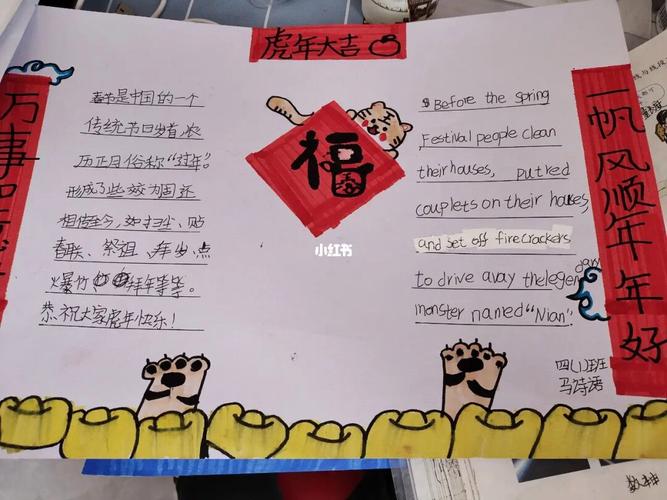 虎年大吉
万事如
春节是中国的一个
传统节日岁首,农
历正月俗称"过年"。
形成了些较为固还
相信至今,如扫尘、贴
春联、祭祖、拜岁、点
爆竹 拜年等等。
恭祝大家虎年快乐!
福
小红书
Before the spring
Festival people clean
theirhouses, putred
couplets on their houses,
and set off firecrackers
to drive avay thelegendary
monster named "Nian".
四(1)班
马诗语
一帆风顺年年好